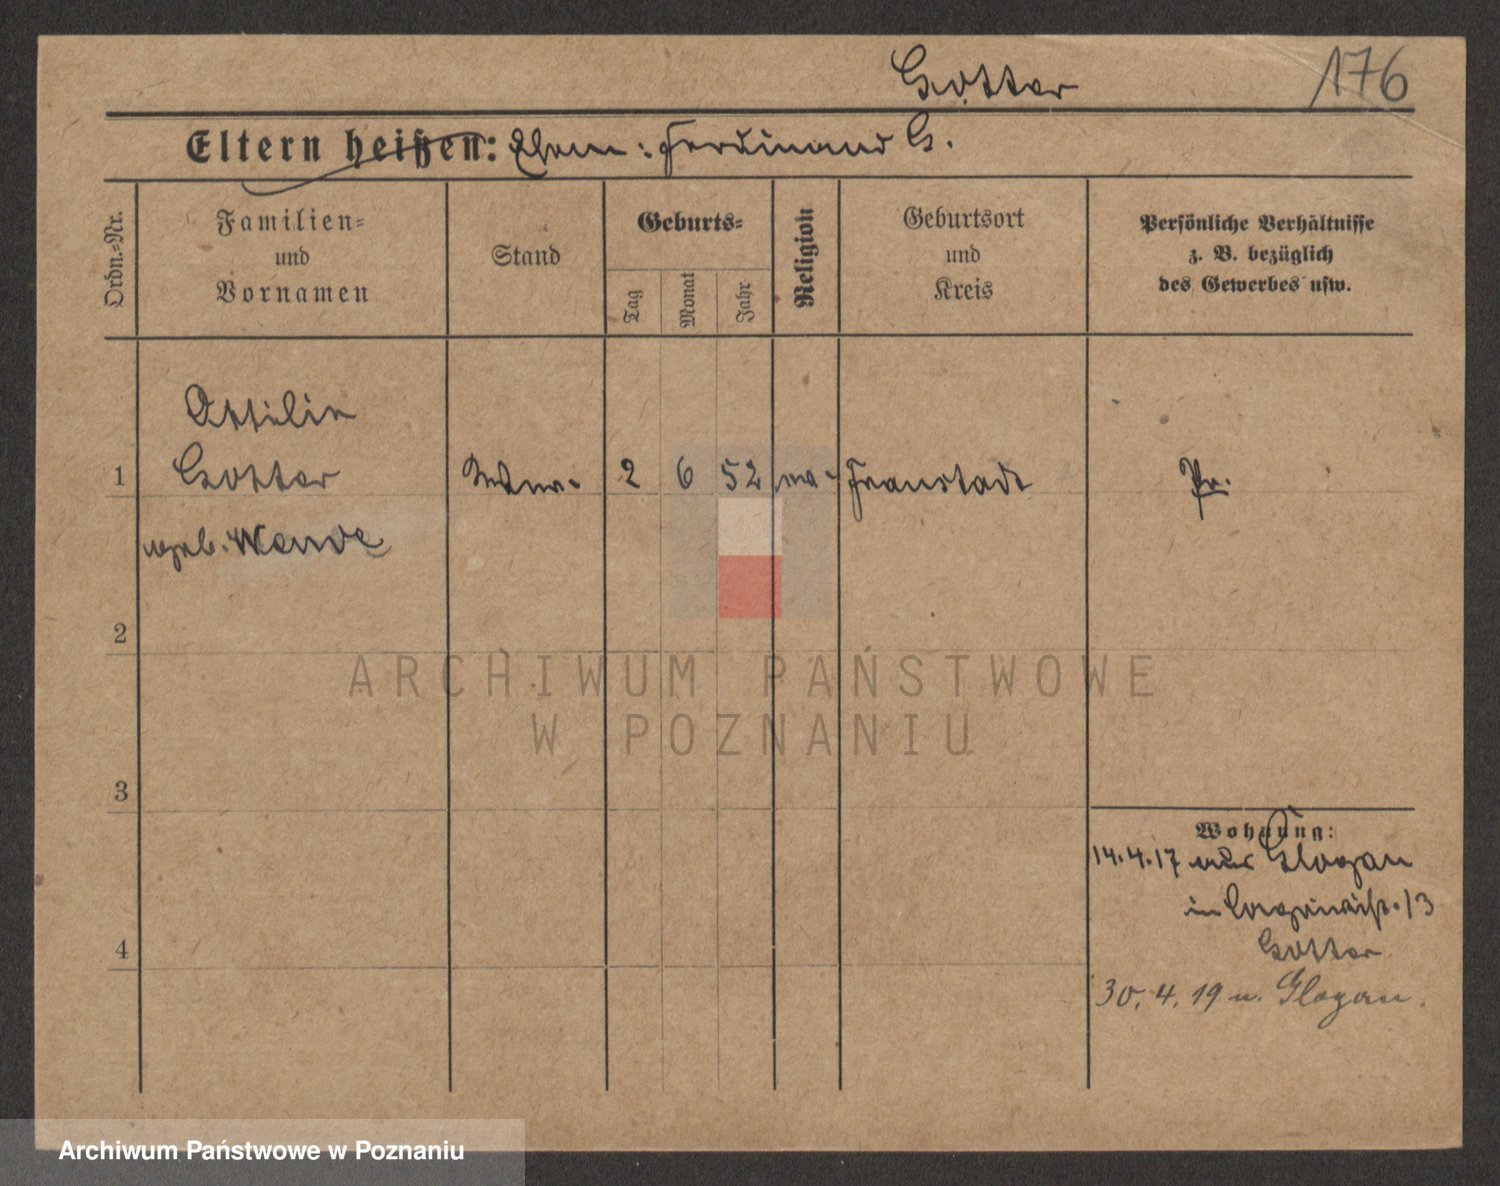 Gotter
176
Eltern heißen: Ehem: Ferdinand G.
Ordn.=Nr.
Familien=
und
Vornamen
Stand
Geburts=
Tag
Monat
Jahr
Religion
Geburtsort
und
Kreis
Persönliche Verhältnisse
z. B. bezüglich
des Gewerbes usw.
Ottilie
1 Gotter Witwe 2 6 52 ev. Fraustadt Pr.
geb. Wende
2
3
4
Wohnung:
14.4.17 aus Glogau
in 13
Gotter
30. 4. 19 n. Glogau.
ARCHIWUM PAŃSTWOWE
W POZNANIU
Archiwum Państwowe w Poznaniu